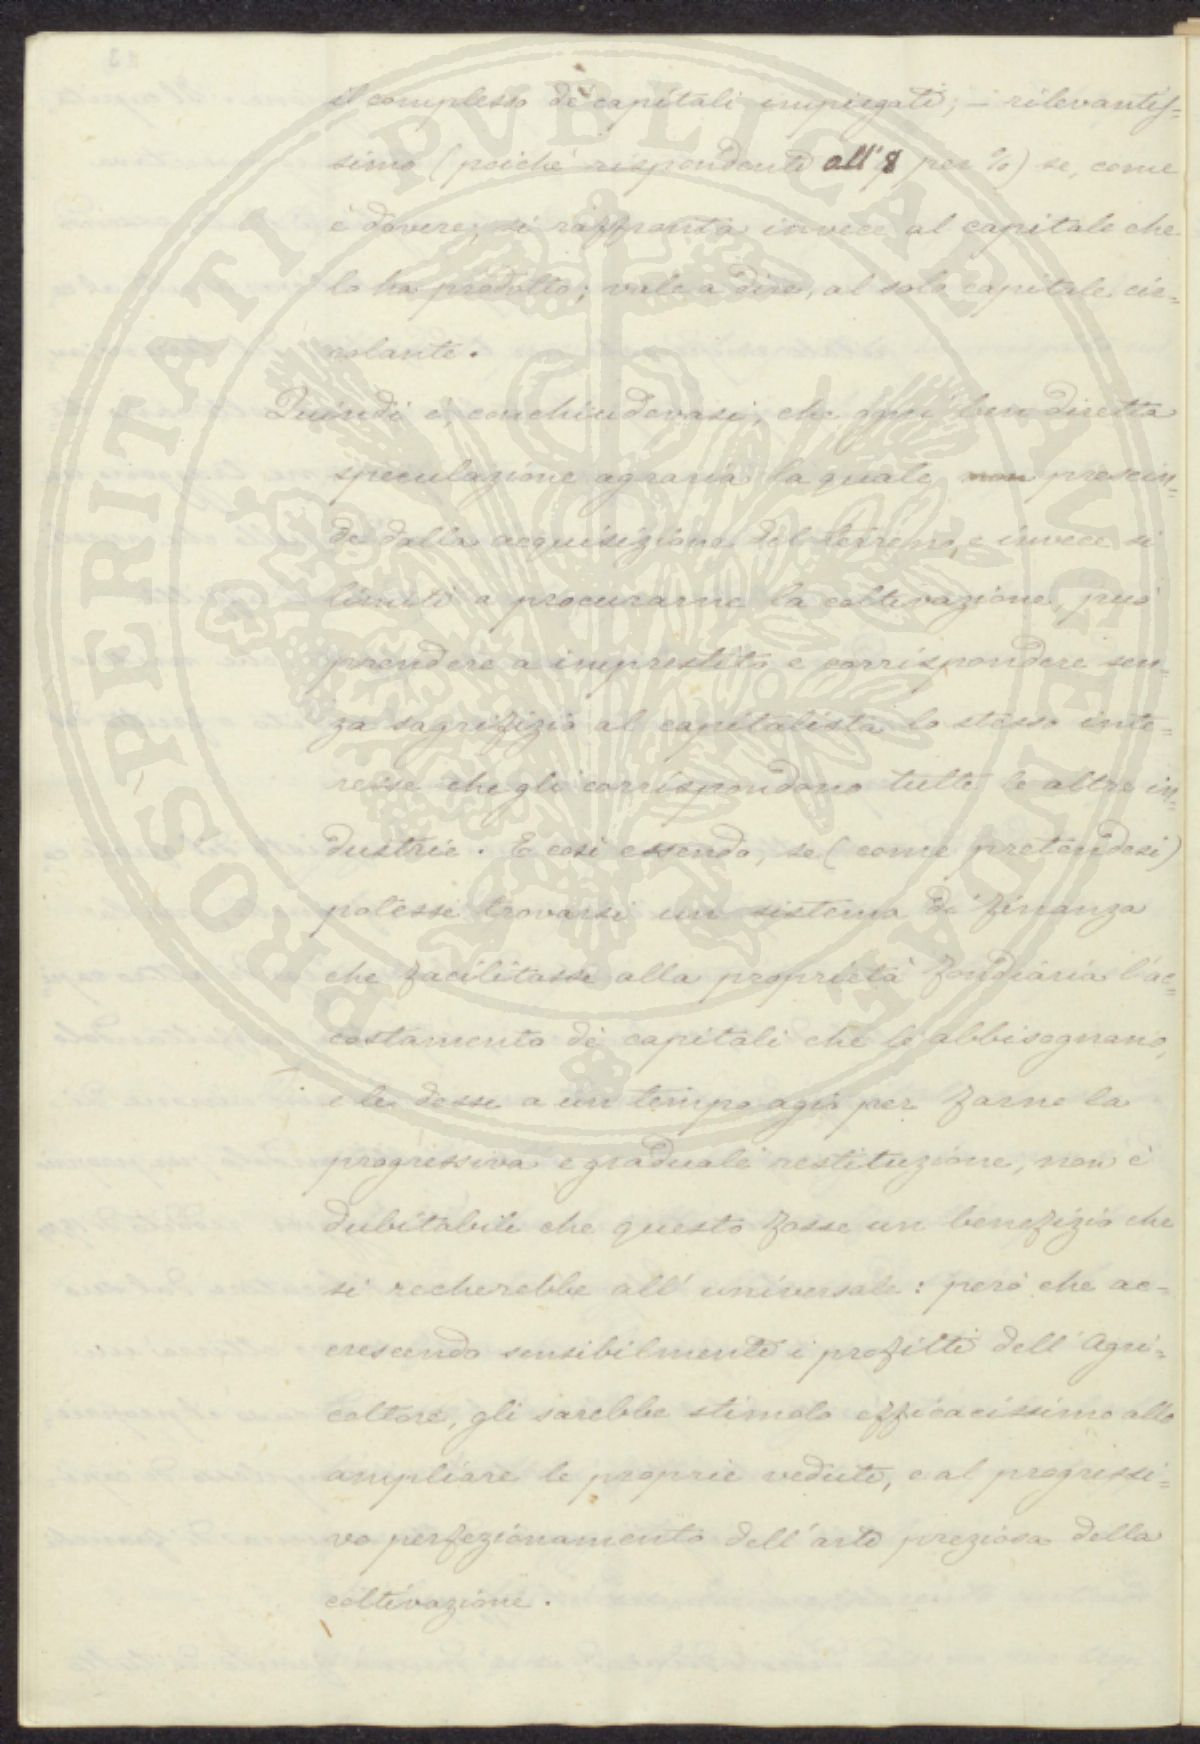 il complesso de' capitali impiegati; – rilevantis-
simo (poiché rispondente all'8 per %) se, come
è dovere, si raffronta invece al capitale che
lo ha prodotto; vale a dire, al solo capitale cir=
colante.
Quindi è, conchiudevasi, che ogni ben diretta
speculazione agraria la quale, non prescin=
de dalla acquisizione del terreno, e invece si
limiti a procurarne la coltivazione, può
prendere a imprestito e corrispondere sen=
za sagrifizio al capitalista lo stesso inte=
resse che gli corrispondono tutte le altre in=
dustrie. E così essendo, se (come pretendesi)
potesse trovarsi un sistema di finanza
che facilitasse alla proprietà fondiaria l'ac=
costamento de' capitali che le abbisognano,
e le desse a un tempo agio per farne la
progressiva e graduale restituzione, non è
dubitabile che questo fosse un benefizio che
si recherebbe all'universale: però che ac=
crescendo sensibilmente i profitti dell'Agri=
coltore, gli sarebbe stimolo efficacissimo allo
ampliare le proprie vedute, e al progressi=
vo perfezionamento dell'arte preziosa della
coltivazione.
PROSPERITATI PVBLICAE AVGENDAE